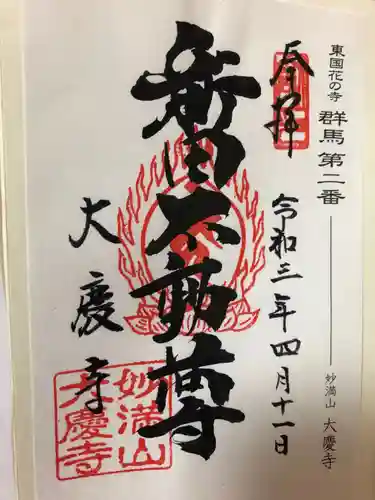 東国花の寺 群馬 第二番
妙満山 大慶寺
奉拝
令和三年四月十一日
新田不動尊
大慶寺
妙満山
大慶寺